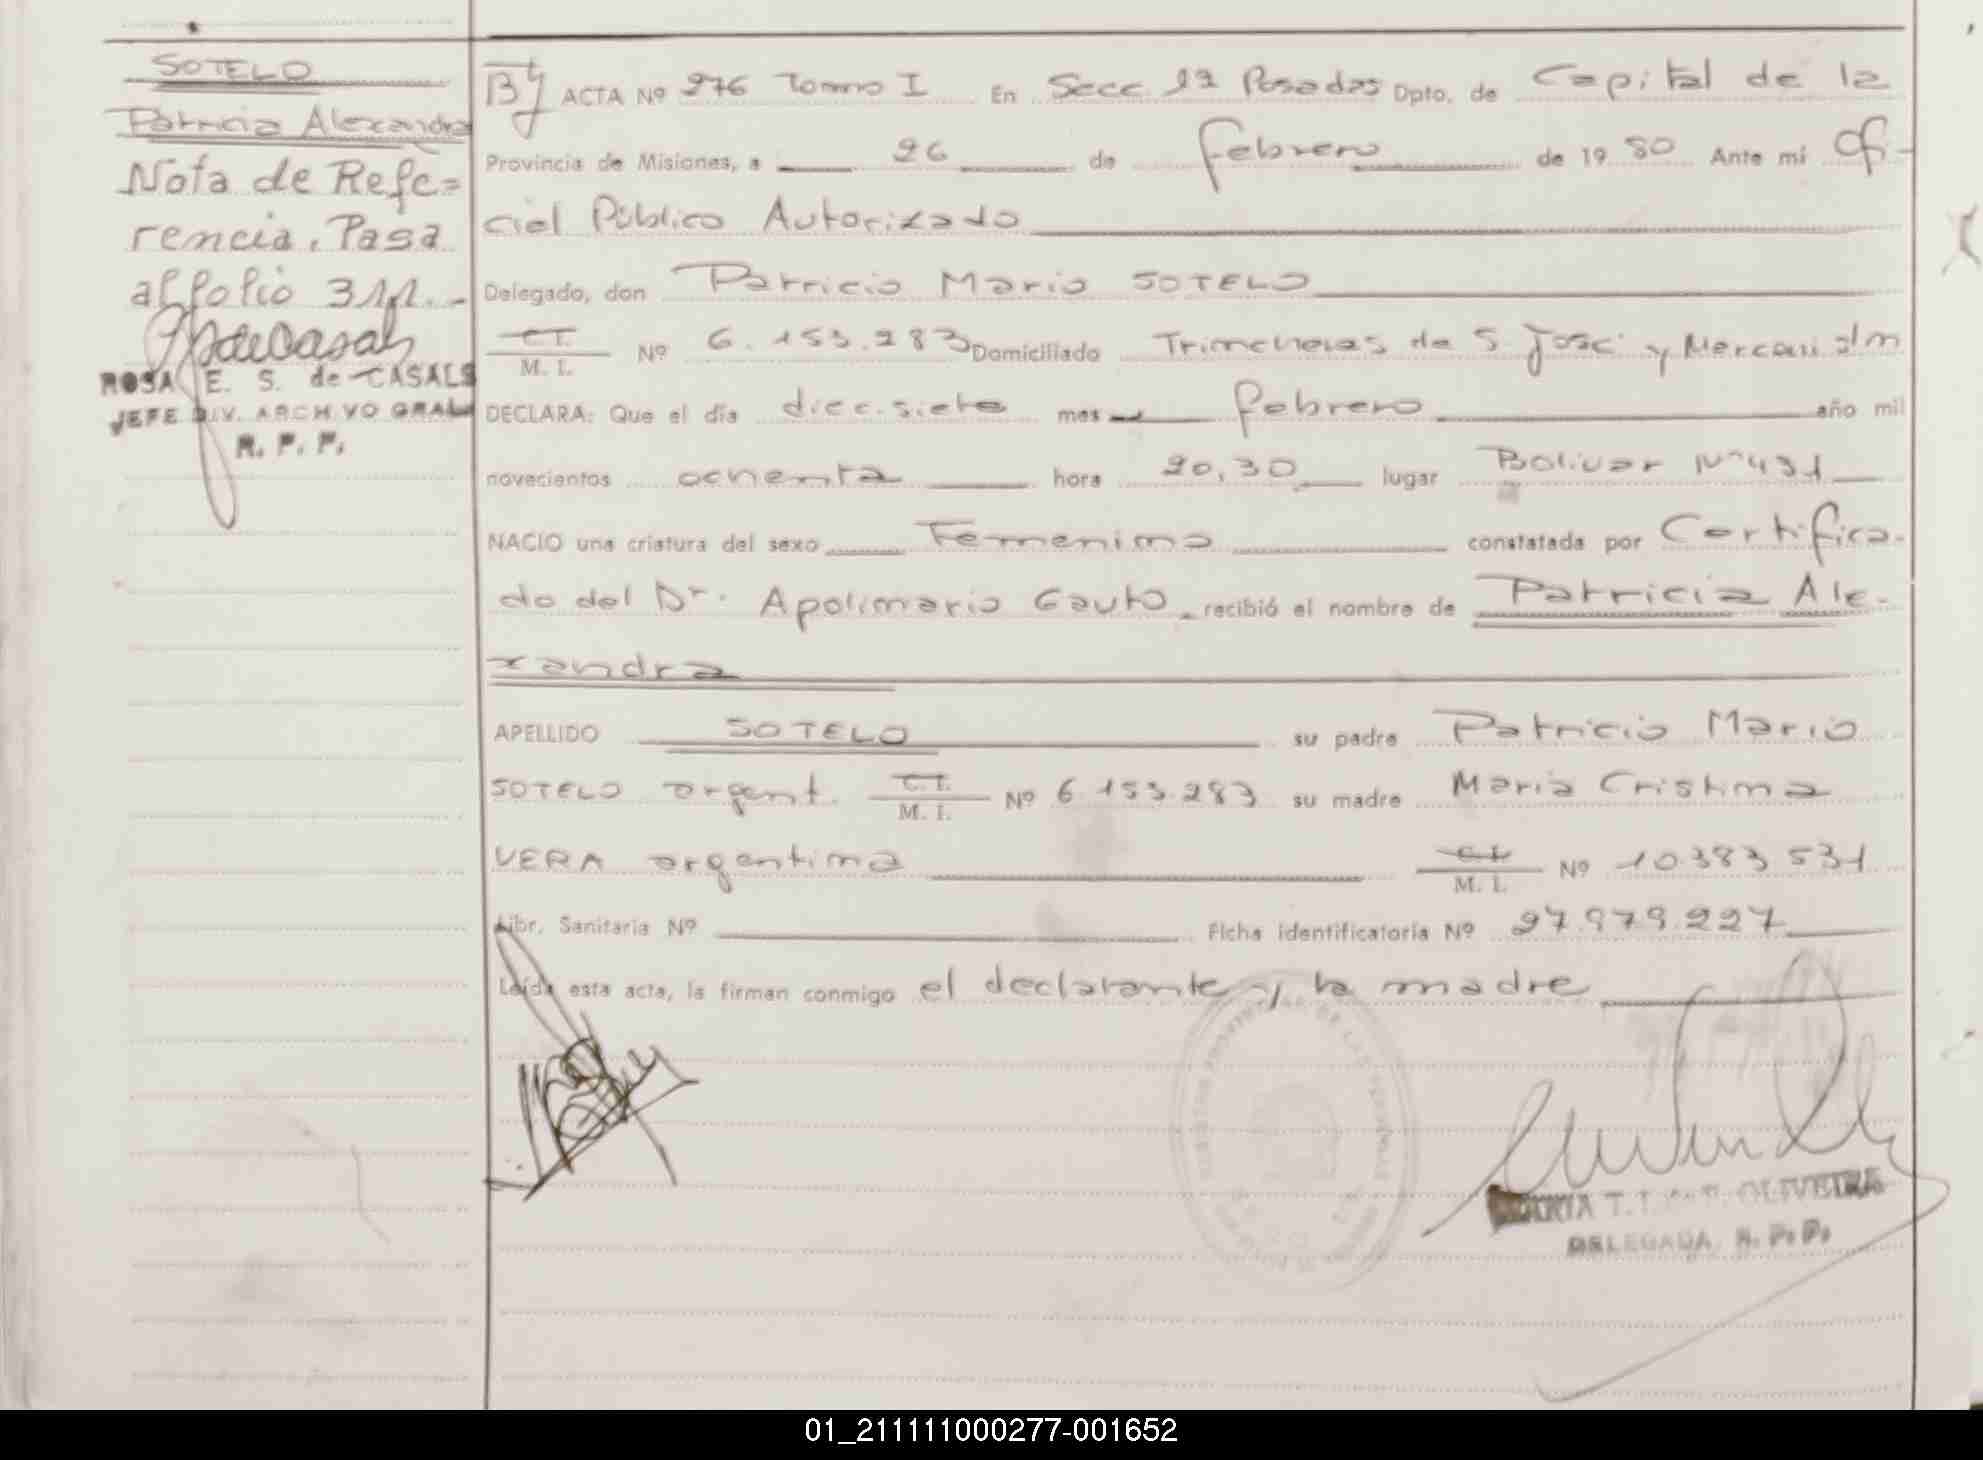 SOTELO
Patricia Alexandra
Nota de Refe=
rencia. Pasa
al folio 311.-
ROSA E. S. de CASALS
JEFE DIV. ARCHIVO GRAL
R. P. P.
ACTA Nº 276 Tomo I En Secc 1ª Posadas Dpto. de Capital de la
Provincia de Misiones, a 26 de febrero de 1980 Ante mi Ofi-
cial Público Autorizado
Delegado, don Patricio Mario SOTELO
C.I.
M. I. Nº 6.153.283 Domiciliado Trincheras de S. José y
DECLARA: Que el día diecisiete mes febrero año mil
novecientos ochenta hora 20,30 lugar Bolivar Nº 431
NACIO una criatura del sexo Femenino constatada por Certifica-
do del Dr. Apolinario Gauto recibió el nombre de Patricia Ale-
xandra
APELLIDO SOTELO su padre Patricio Mario
SOTELO argent. C.I.
M. I. Nº 6.153.283 su madre Maria Cristina
VERA argentina C.I.
M. I. Nº 10.383.531
Libr. Sanitaria Nº Ficha identificatoria Nº 27.979.227
Leída esta acta, la firman conmigo el declarante y la madre
MARIA T. OLIVEIRA
DELEGADA R. P. P.
01_211111000277-001652